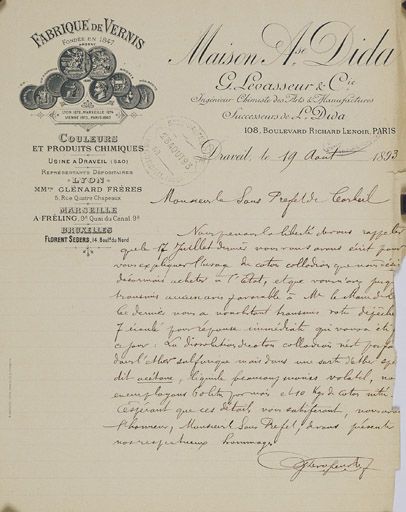 FABRIQUE DE VERNIS
FONDÉE EN 1847
LYON 1872, MARSEILLE 1874
VIENNE 1873, PARIS 1867
COULEURS
ET PRODUITS CHIMIQUES
USINE A DRAVEIL (S&O)
REPRÉSENTANTS DÉPOSITAIRES
LYON
MMrs GLÉNARD FRÈRES
5, Rue Quatre Chapeaux
MARSEILLE
A. FRÉLING, 9A Quai du Canal, 9A
BRUXELLES
FLORENT SEGERS, 14, Boulf du Nord
Maison Ase Dida
G. Levasseur & Cie
Ingénieur Chimiste des Arts & Manufactures
Successeurs de Ls Dida
108, BOULEVARD RICHARD LENOIR, PARIS
Draveil, le 19 Août 1893
Monsieur le Sous Préfet de Corbeil
Nous prenons la liberté de vous rappeler
que le 17 Juillet dernier nous vous avons écrit pour
vous expliquer l'usage du coton collodion que nous
désormais acheter à l'Etat, et que vous n'avez
transmis aucun avis favorable à Mr le Maire de
Ce dernier nous a nonobstant transmis votre dépêche
7 écoulé pour réponse immédiate qui vous a été
ce jour. La dissolution du coton collodion n'est pas
dans l'éther sulfurique mais dans une sorte d'éther
dit acétone, liquide beaucoup moins volatil, nous
en employons 60 litres par mois et 10 kgs de coton
Espérant que ces détails vous satisferont, nous avons
l'honneur, Monsieur le Sous Préfet, de vous présenter
nos respectueux hommages